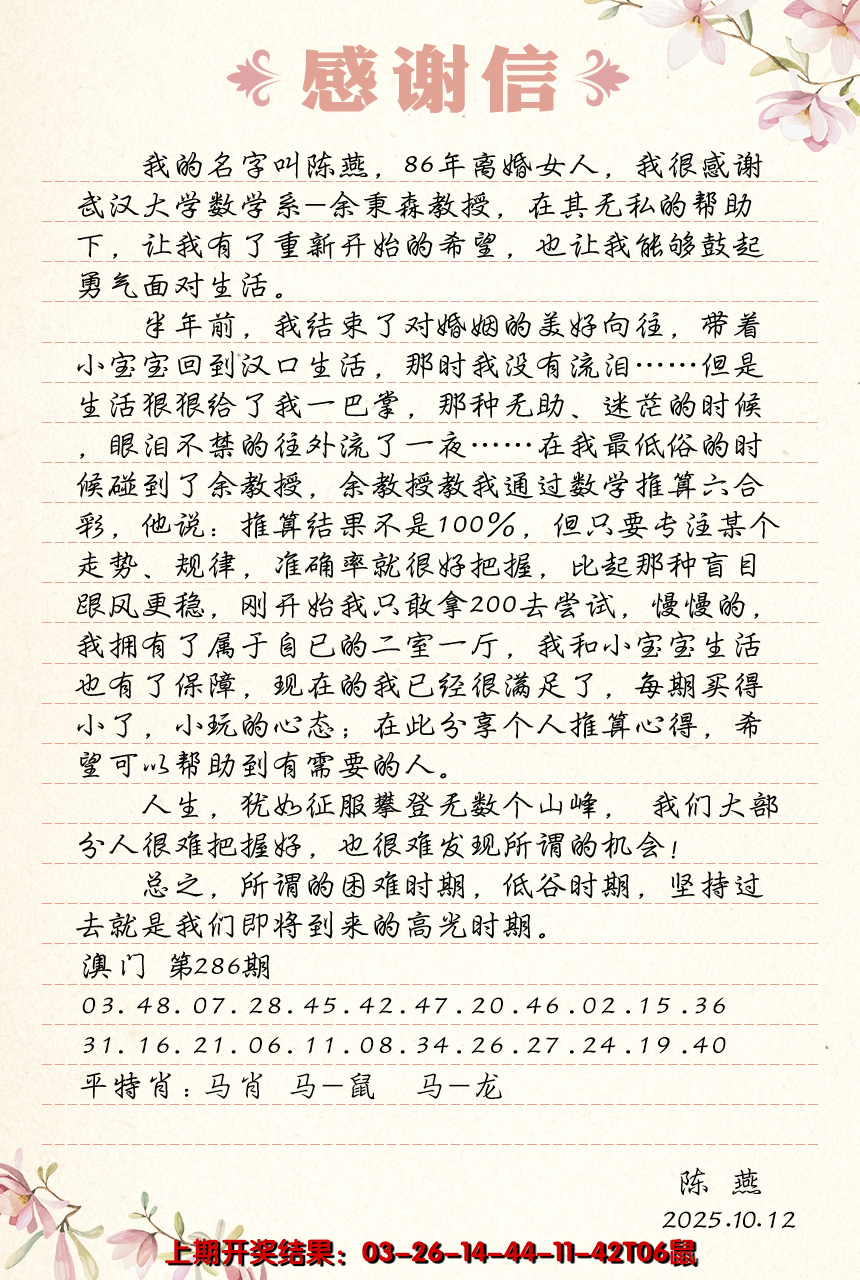 感谢信
我的名字叫陈燕，86年离婚女人，我很感谢
武汉大学数学系—余秉森教授，在其无私的帮助
下，让我有了重新开始的希望，也让我能够鼓起
勇气面对生活。
半年前，我结束了对婚姻的美好向往，带着
小宝宝回到汉口生活，那时我没有流泪……但是
生活狠狠给了我一巴掌，那种无助、迷茫的时候
，眼泪不禁的往外流了一夜……在我最低俗的时
候碰到了余教授，余教授教我通过数学推算六合
彩，他说：推算结果不是100%，但只要专注某个
走势、规律，准确率就很好把握，比起那种盲目
跟风更稳，刚开始我只敢拿200去尝试，慢慢的，
我拥有了属于自已的二室一厅，我和小宝宝生活
也有了保障，现在的我已经很满足了，每期买得
小了，小玩的心态；在此分享个人推算心得，希
望可以帮助到有需要的人。
人生，犹如征服攀登无数个山峰， 我们大部
分人很难把握好，也很难发现所谓的机会！
总之，所谓的困难时期，低谷时期，坚持过
去就是我们即将到来的高光时期。
澳门 第286期
03.48.07.28.45.42.47.20.46.02.15.36
31.16.21.06.11.08.34.26.27.24.19.40
平特肖：马肖 马—鼠 马—龙
陈 燕
2025.10.12
上期开奖结果：03-26-14-44-11-42T06鼠